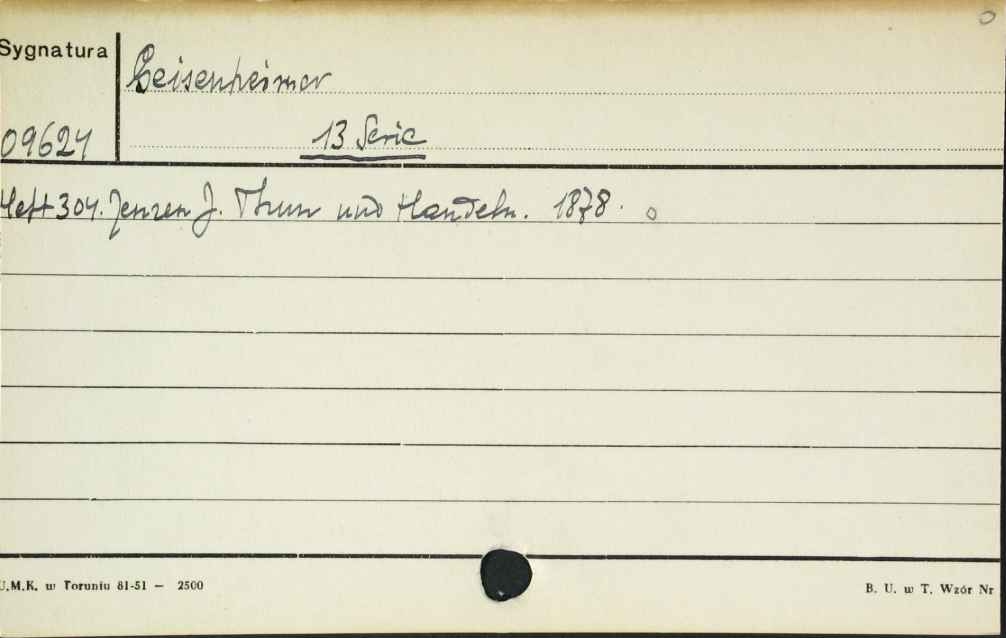 Sygnatura
Geisenheimer
09624
13 Serie
Heft 304. Jenzen J. Thun und Handeln. 1878.
U.M.K. w Toruniu 81-51 — 2500
B. U. w T. Wzór Nr